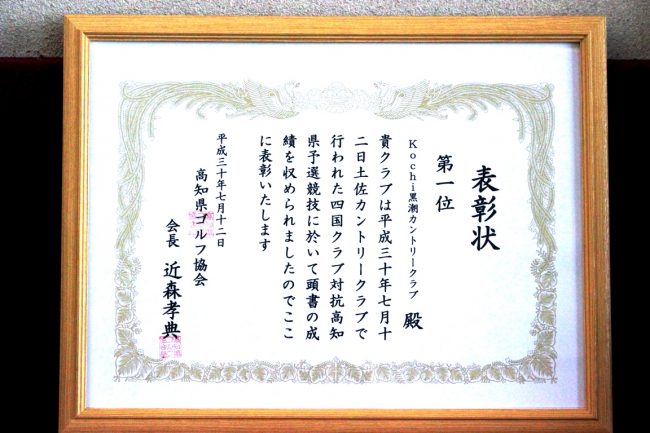 表彰状
第一位
Kochi黒潮カントリークラブ 殿
貴クラブは平成三十年七月十
二日土佐カントリークラブで
行われた四国クラブ対抗高知
県予選競技に於いて頭書の成
績を収められましたのでここ
に表彰いたします
平成三十年七月十二日
高知県ゴルフ協会
会長 近森孝典